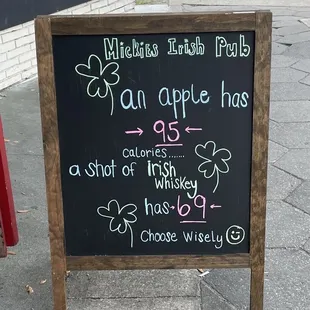 Mickies Irish Pub
an apple has
→ 95 ←
calories.......
a shot of Irish
Whiskey
has → 69 ←
Choose Wisely ☺